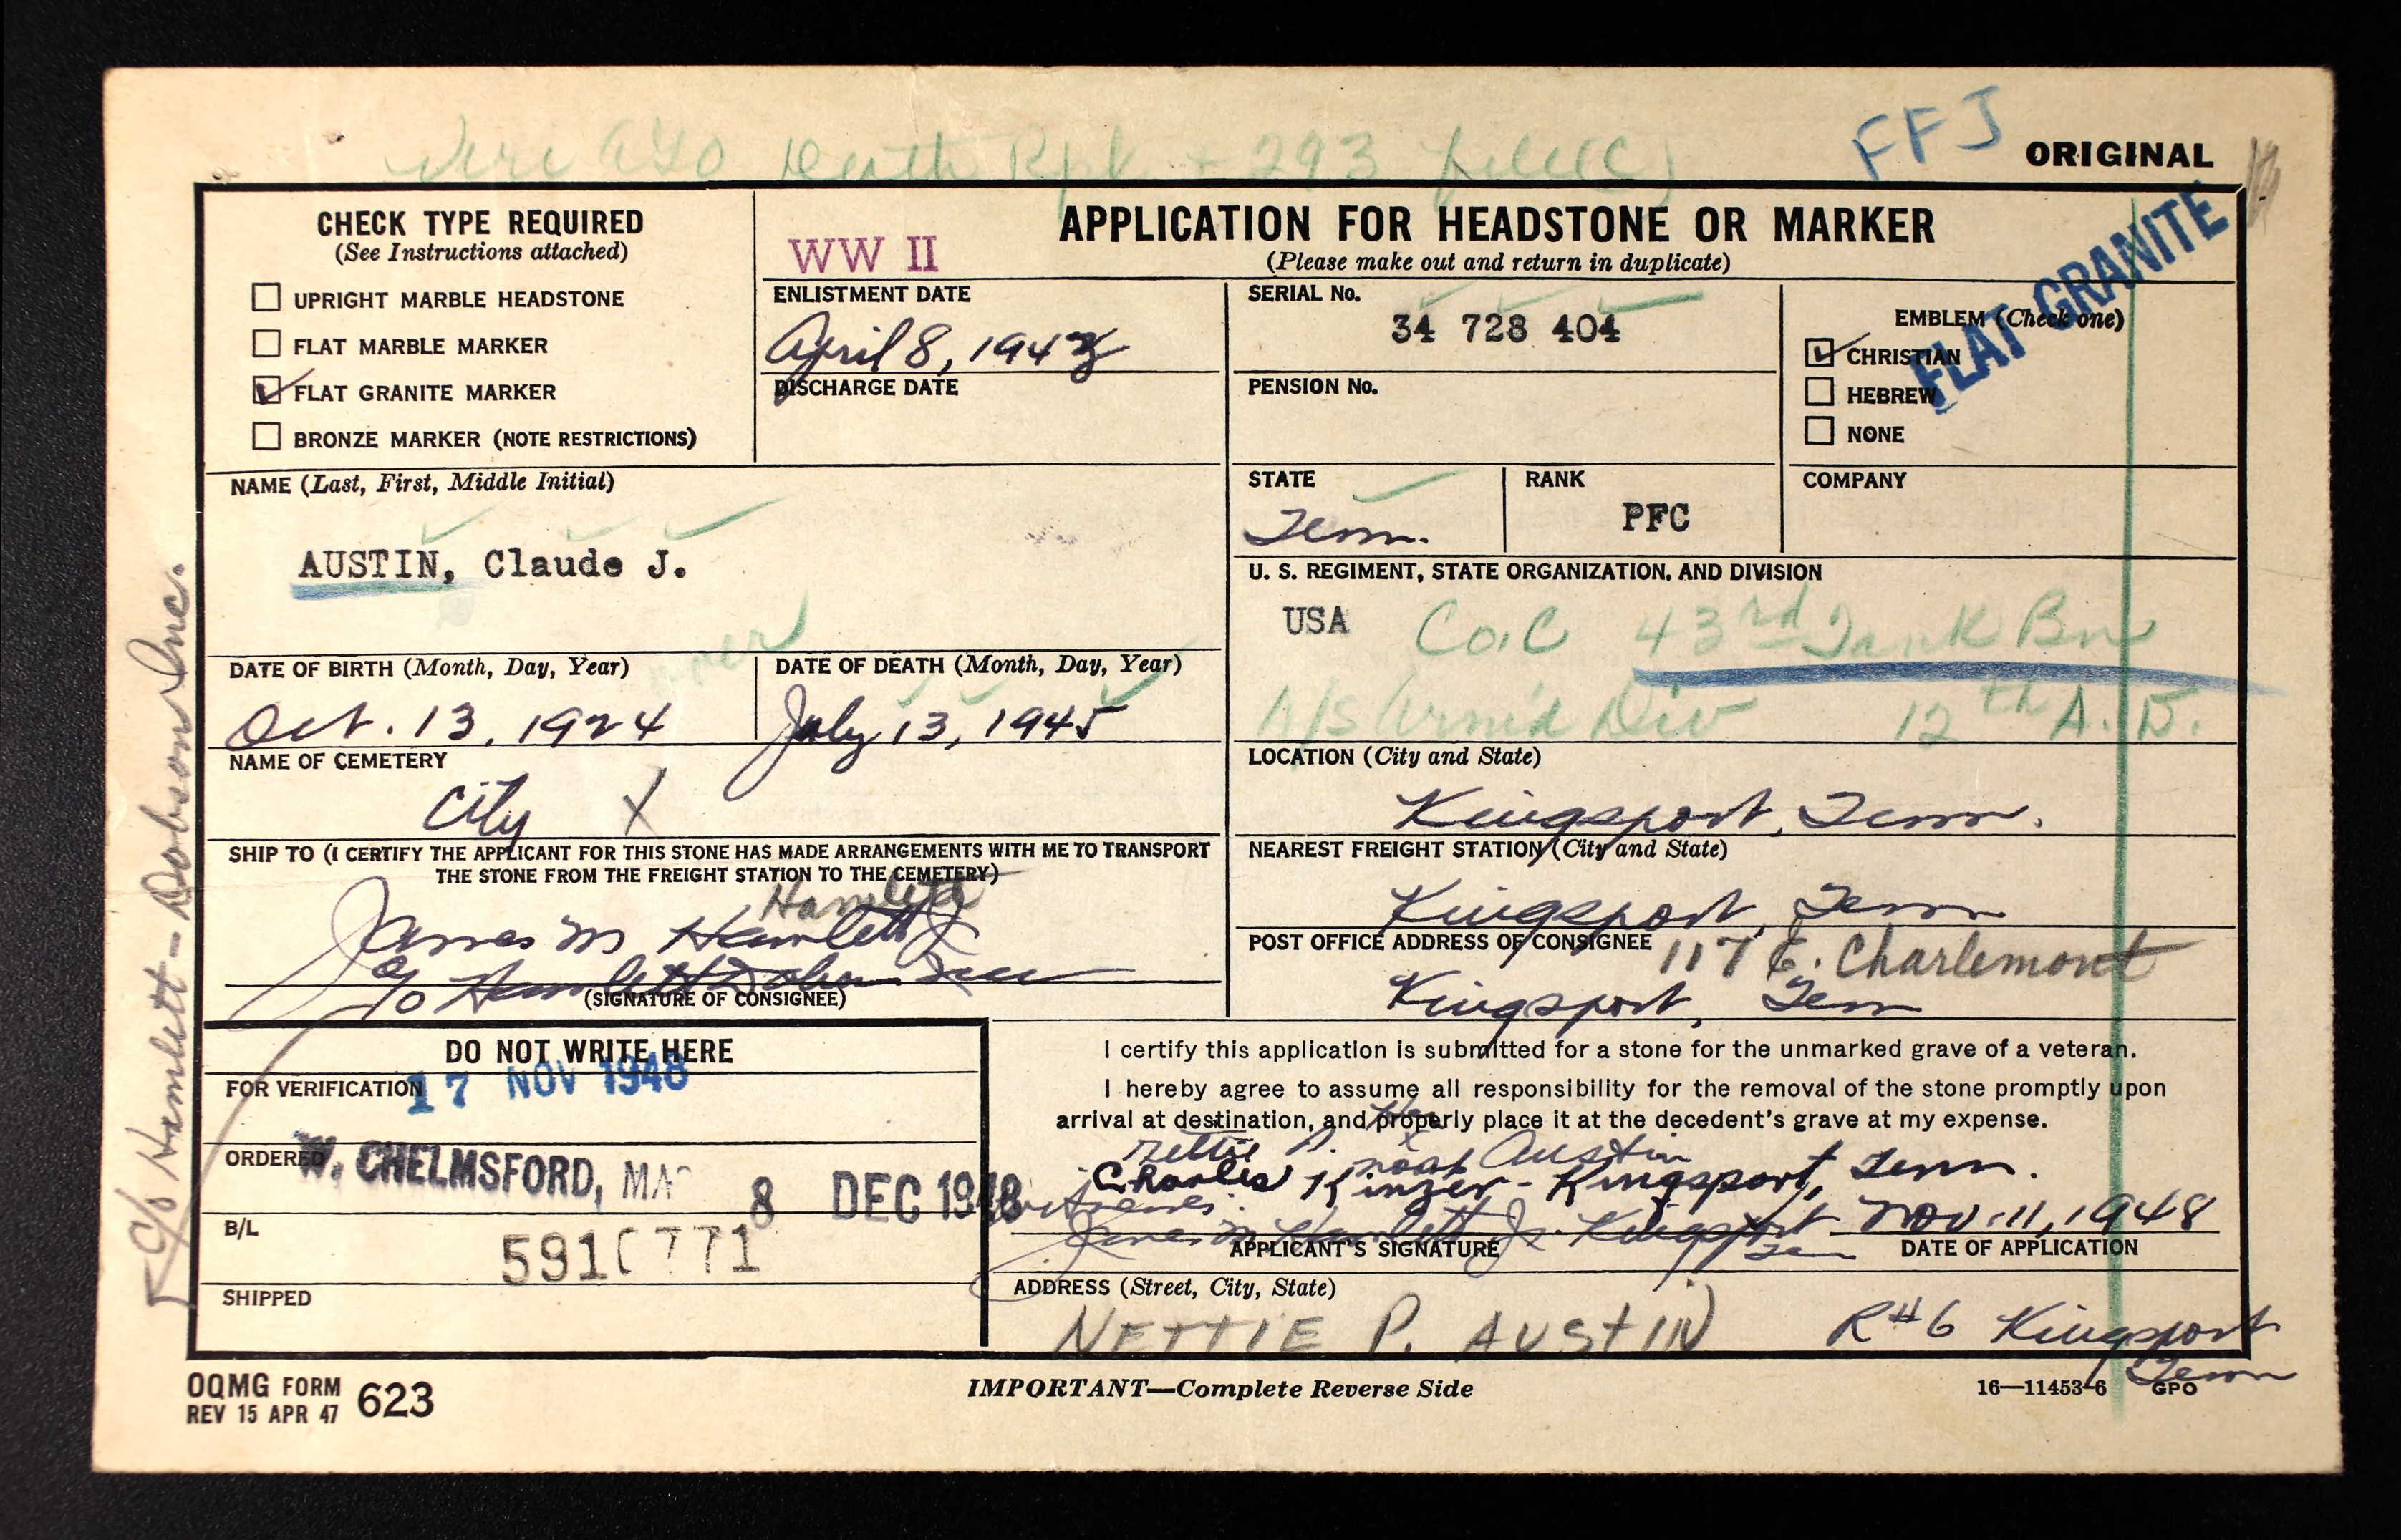 Veri AGO Death Rpt + 293 file (C)
FFJ
ORIGINAL
CHECK TYPE REQUIRED
(See Instructions attached)
UPRIGHT MARBLE HEADSTONE
FLAT MARBLE MARKER
FLAT GRANITE MARKER
BRONZE MARKER (NOTE RESTRICTIONS)
WW II
APPLICATION FOR HEADSTONE OR MARKER
(Please make out and return in duplicate)
FLAT GRANITE
ENLISTMENT DATE
April 8, 1943
DISCHARGE DATE
SERIAL No.
34 728 404
PENSION No.
EMBLEM (Check one)
CHRISTIAN
HEBREW
NONE
NAME (Last, First, Middle Initial)
AUSTIN, Claude J.
STATE
Tenn.
RANK
PFC
COMPANY
U. S. REGIMENT, STATE ORGANIZATION, AND DIVISION
USA Co. C 43rd Tank Bn
Arm'd Div 12th A. D.
DATE OF BIRTH (Month, Day, Year)
Oct. 13, 1924
DATE OF DEATH (Month, Day, Year)
July 13, 1945
NAME OF CEMETERY
City X
LOCATION (City and State)
Kingsport, Tenn.
SHIP TO (I CERTIFY THE APPLICANT FOR THIS STONE HAS MADE ARRANGEMENTS WITH ME TO TRANSPORT
THE STONE FROM THE FREIGHT STATION TO THE CEMETERY)
Hamlett
James M Hamlett Jr
c/o Hamlett Dobson Inc
(SIGNATURE OF CONSIGNEE)
NEAREST FREIGHT STATION (City and State)
Kingsport, Tenn
POST OFFICE ADDRESS OF CONSIGNEE
117 E. Charlemont
Kingsport, Tenn
c/o Hamlett-Dobson Inc.
DO NOT WRITE HERE
FOR VERIFICATION
17 NOV 1948
ORDERED
W. CHELMSFORD, MA 8 DEC 1948
B/L
SHIPPED
I certify this application is submitted for a stone for the unmarked grave of a veteran.
I hereby agree to assume all responsibility for the removal of the stone promptly upon
arrival at destination, and properly place it at the decedent's grave at my expense.
Her
Nettie P. X Austin
mark
Charles Kinzer - Kingsport, Tenn.
Witnesses:
James M Hamlett Jr. Kingsport Tenn
APPLICANT'S SIGNATURE
Nov. 11, 1948
DATE OF APPLICATION
ADDRESS (Street, City, State)
NETTIE P. AUSTIN R#6 Kingsport
Tenn
OQMG FORM 623
REV 15 APR 47
IMPORTANT—Complete Reverse Side
16—11453-6 GPO